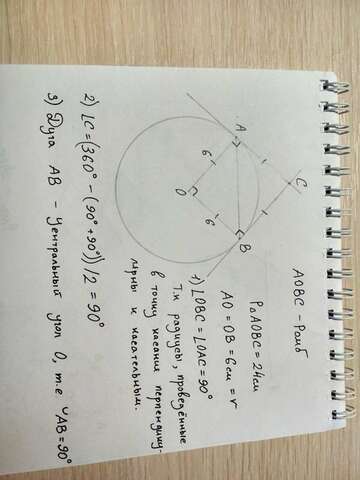 AOBC - Ромб
PдAOBC = 24см
AO = OB = 6см = r
1) ∠OBC = ∠OAC = 90°
Т.к радиусы, проведённые
в точку касания перпендику-
лярны к касательным.
2) ∠C = (360° - (90° + 90°))/2 = 90°
3) Дуга AB - центральный угол O, т.е ◡AB = 90°
A
C
B
O
6
6